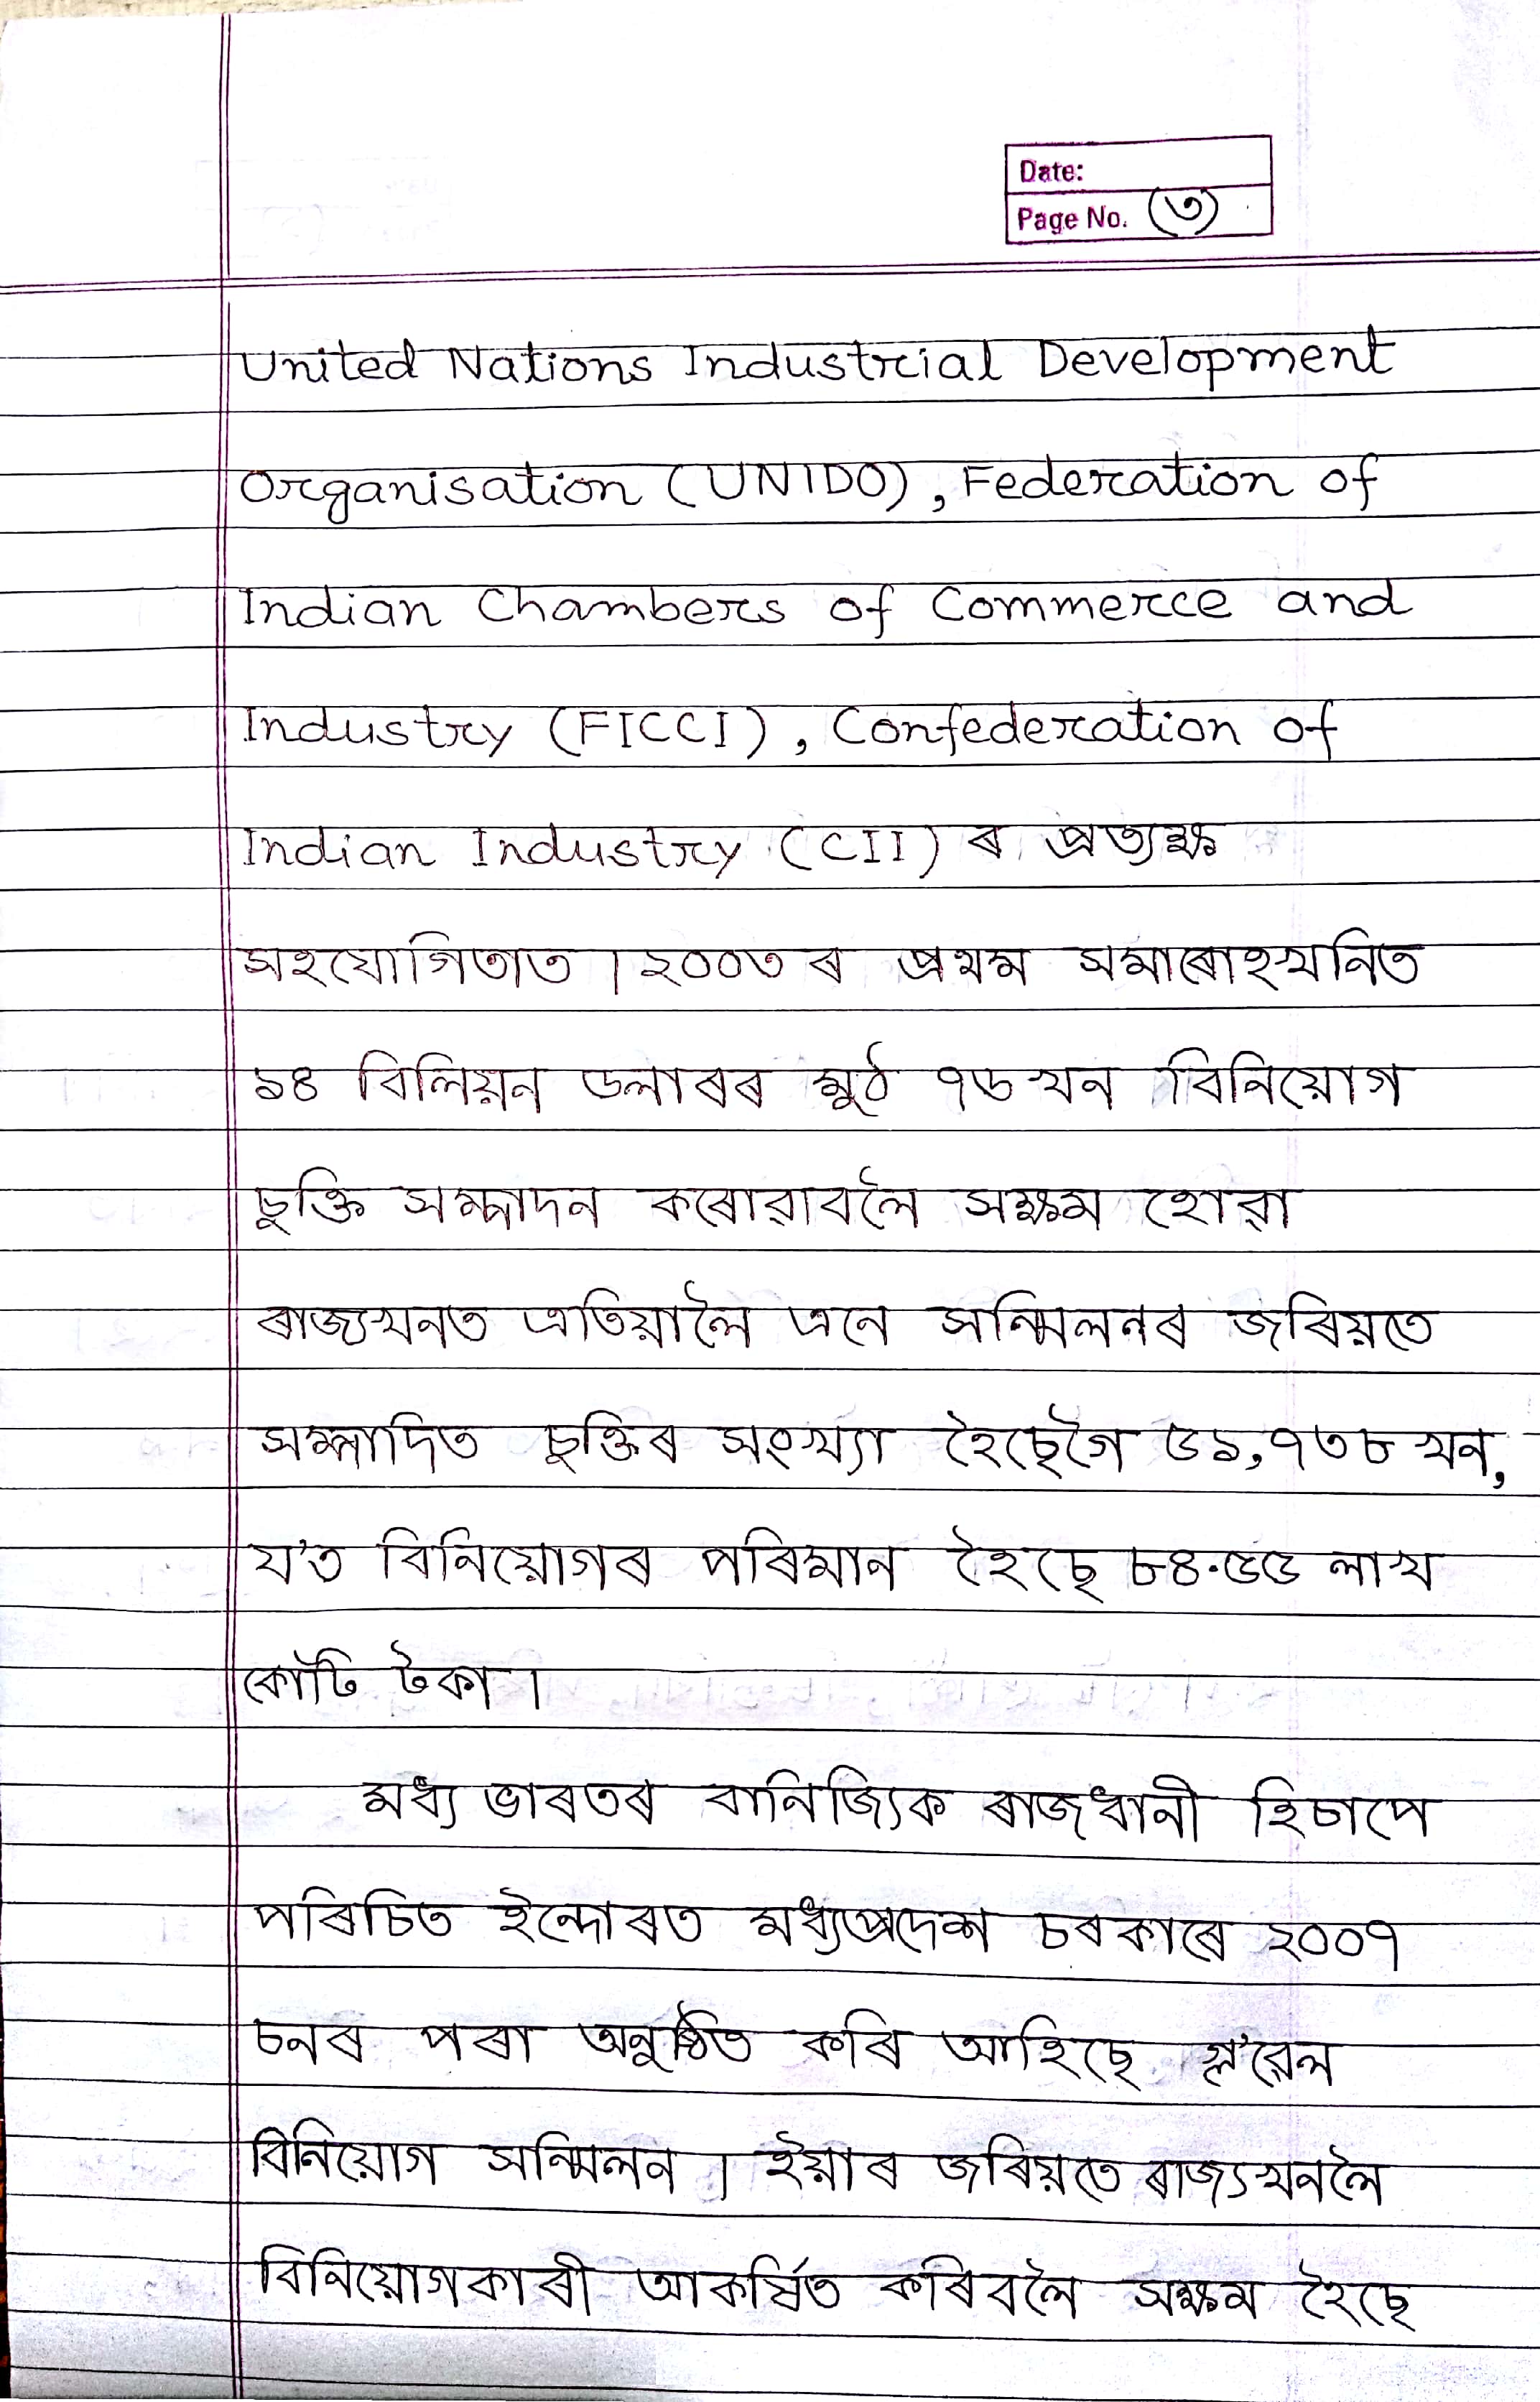 Date:
Page No. (৩)
United Nations Industrial Development
Organisation (UNIDO), Federation of
Indian Chambers of Commerce and
Industry (FICCI), Confederation of
Indian Industry (CII) ৰ প্ৰত্যক্ষ
সহযোগিতাত । ২০০৩ ৰ প্ৰথম সমাৰোহখনিত
১৪ বিলিয়ন ডলাৰৰ মুঠ ৭৬ খন বিনিয়োগ
চুক্তি সম্পাদন কৰোৱাবলৈ সক্ষম হোৱা
ৰাজ্যখনত এতিয়ালৈ এনে সন্মিলনৰ জৰিয়তে
সম্পাদিত চুক্তিৰ সংখ্যা হৈছেগৈ ৫১,৭৩৮ খন,
য'ত বিনিয়োগৰ পৰিমান হৈছে ৮৪.৫৫ লাখ
কোটি টকা ।
মধ্য ভাৰতৰ বানিজ্যিক ৰাজধানী হিচাপে
পৰিচিত ইন্দোৰত মধ্যপ্ৰদেশ চৰকাৰে ২০০৭
চনৰ পৰা অনুষ্ঠিত কৰি আহিছে গ্ল'বেল
বিনিয়োগ সন্মিলন । ইয়াৰ জৰিয়তে ৰাজ্যখনলৈ
বিনিয়োগকাৰী আকৰ্ষিত কৰিবলৈ সক্ষম হৈছে